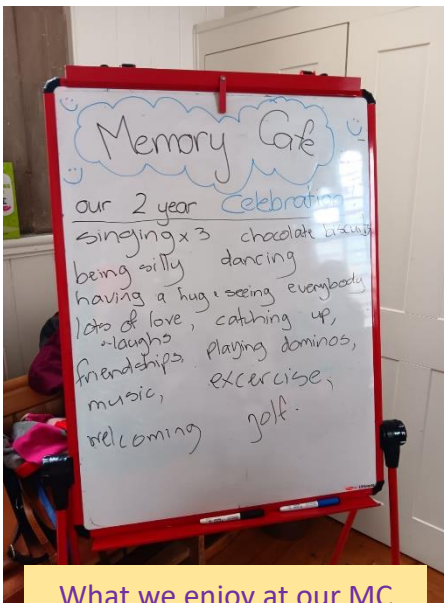 Memory Cafe
our 2 year Celebration
singing x 3 chocolate biscuits
being silly dancing
having a hug & seeing everybody
lots of love, catching up,
~laughs
friendships, playing dominos,
music, excercise,
welcoming golf.
What we enjoy at our MC